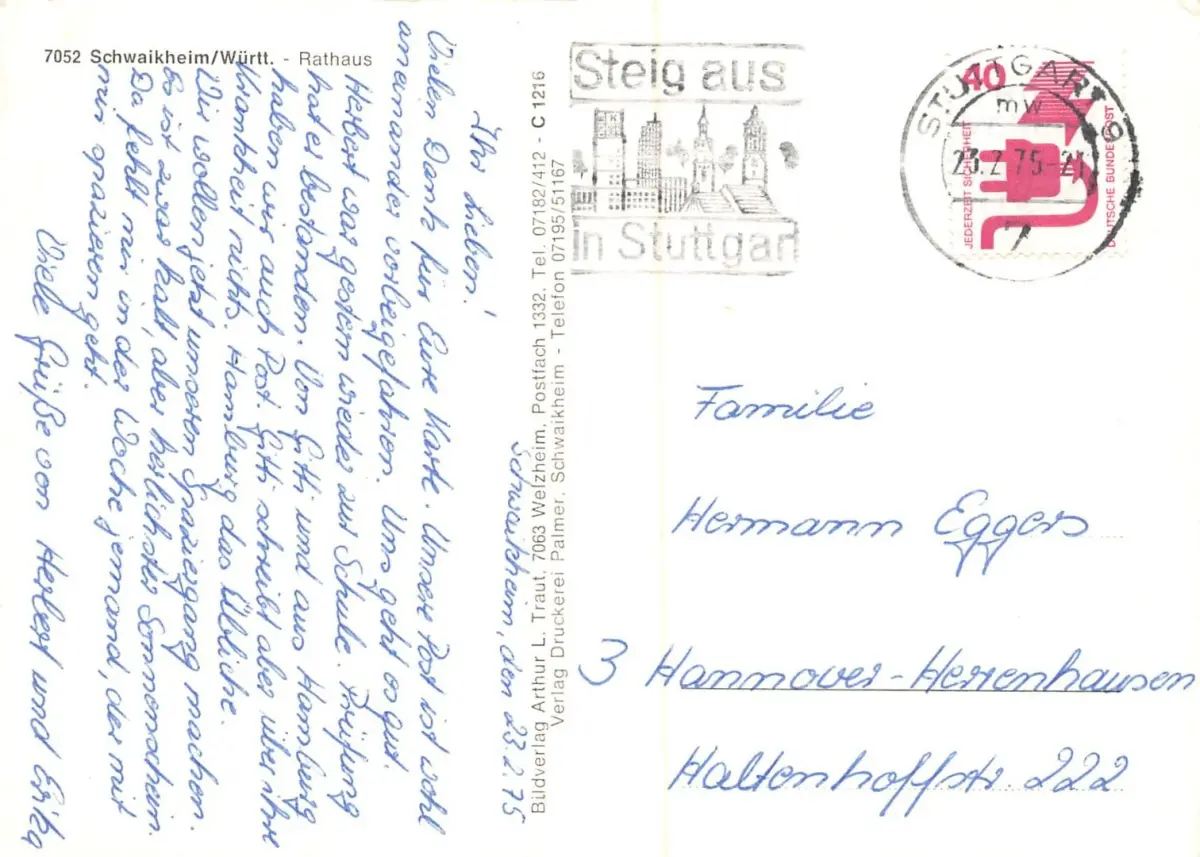 7052 Schwaikheim/Württ. - Rathaus
Schwaikheim, den 23.2.75
Ihr Lieben!
Vielen Dank für Eure Karte. Unsere Post ist wohl
aneinander vorbeigefahren. Uns geht es gut.
Herbert war gestern wieder zur Schule. Prüfung
hat er bestanden. Von Gitti und aus Hamburg
haben wir auch Post. Gitti schreibt aber über ihre
Krankheit nichts. Hamburg das Übliche.
Wir wollen jetzt unseren Spaziergang machen.
Es ist zwar kalt, aber herlichster Sonnenschein.
Da fehlt nur in der Woche jemand, der mit
mir spazieren geht.
Viele Grüße von Herbert und Erika
Bildverlag Arthur L. Traut, 7063 Welzheim, Postfach 1332, Tel. 07182/412 - C 1216
Verlag Druckerei Palmer, Schwaikheim - Telefon 07195/51167
Steig aus
in Stuttgart
STUTTGART 9
mw
23.2.75-21
7
40
JEDERZEIT SICHERHEIT
DEUTSCHE BUNDESPOST
Familie
Hermann Eggers
3 Hannover-Herrenhausen
Haltenhoffstr. 222